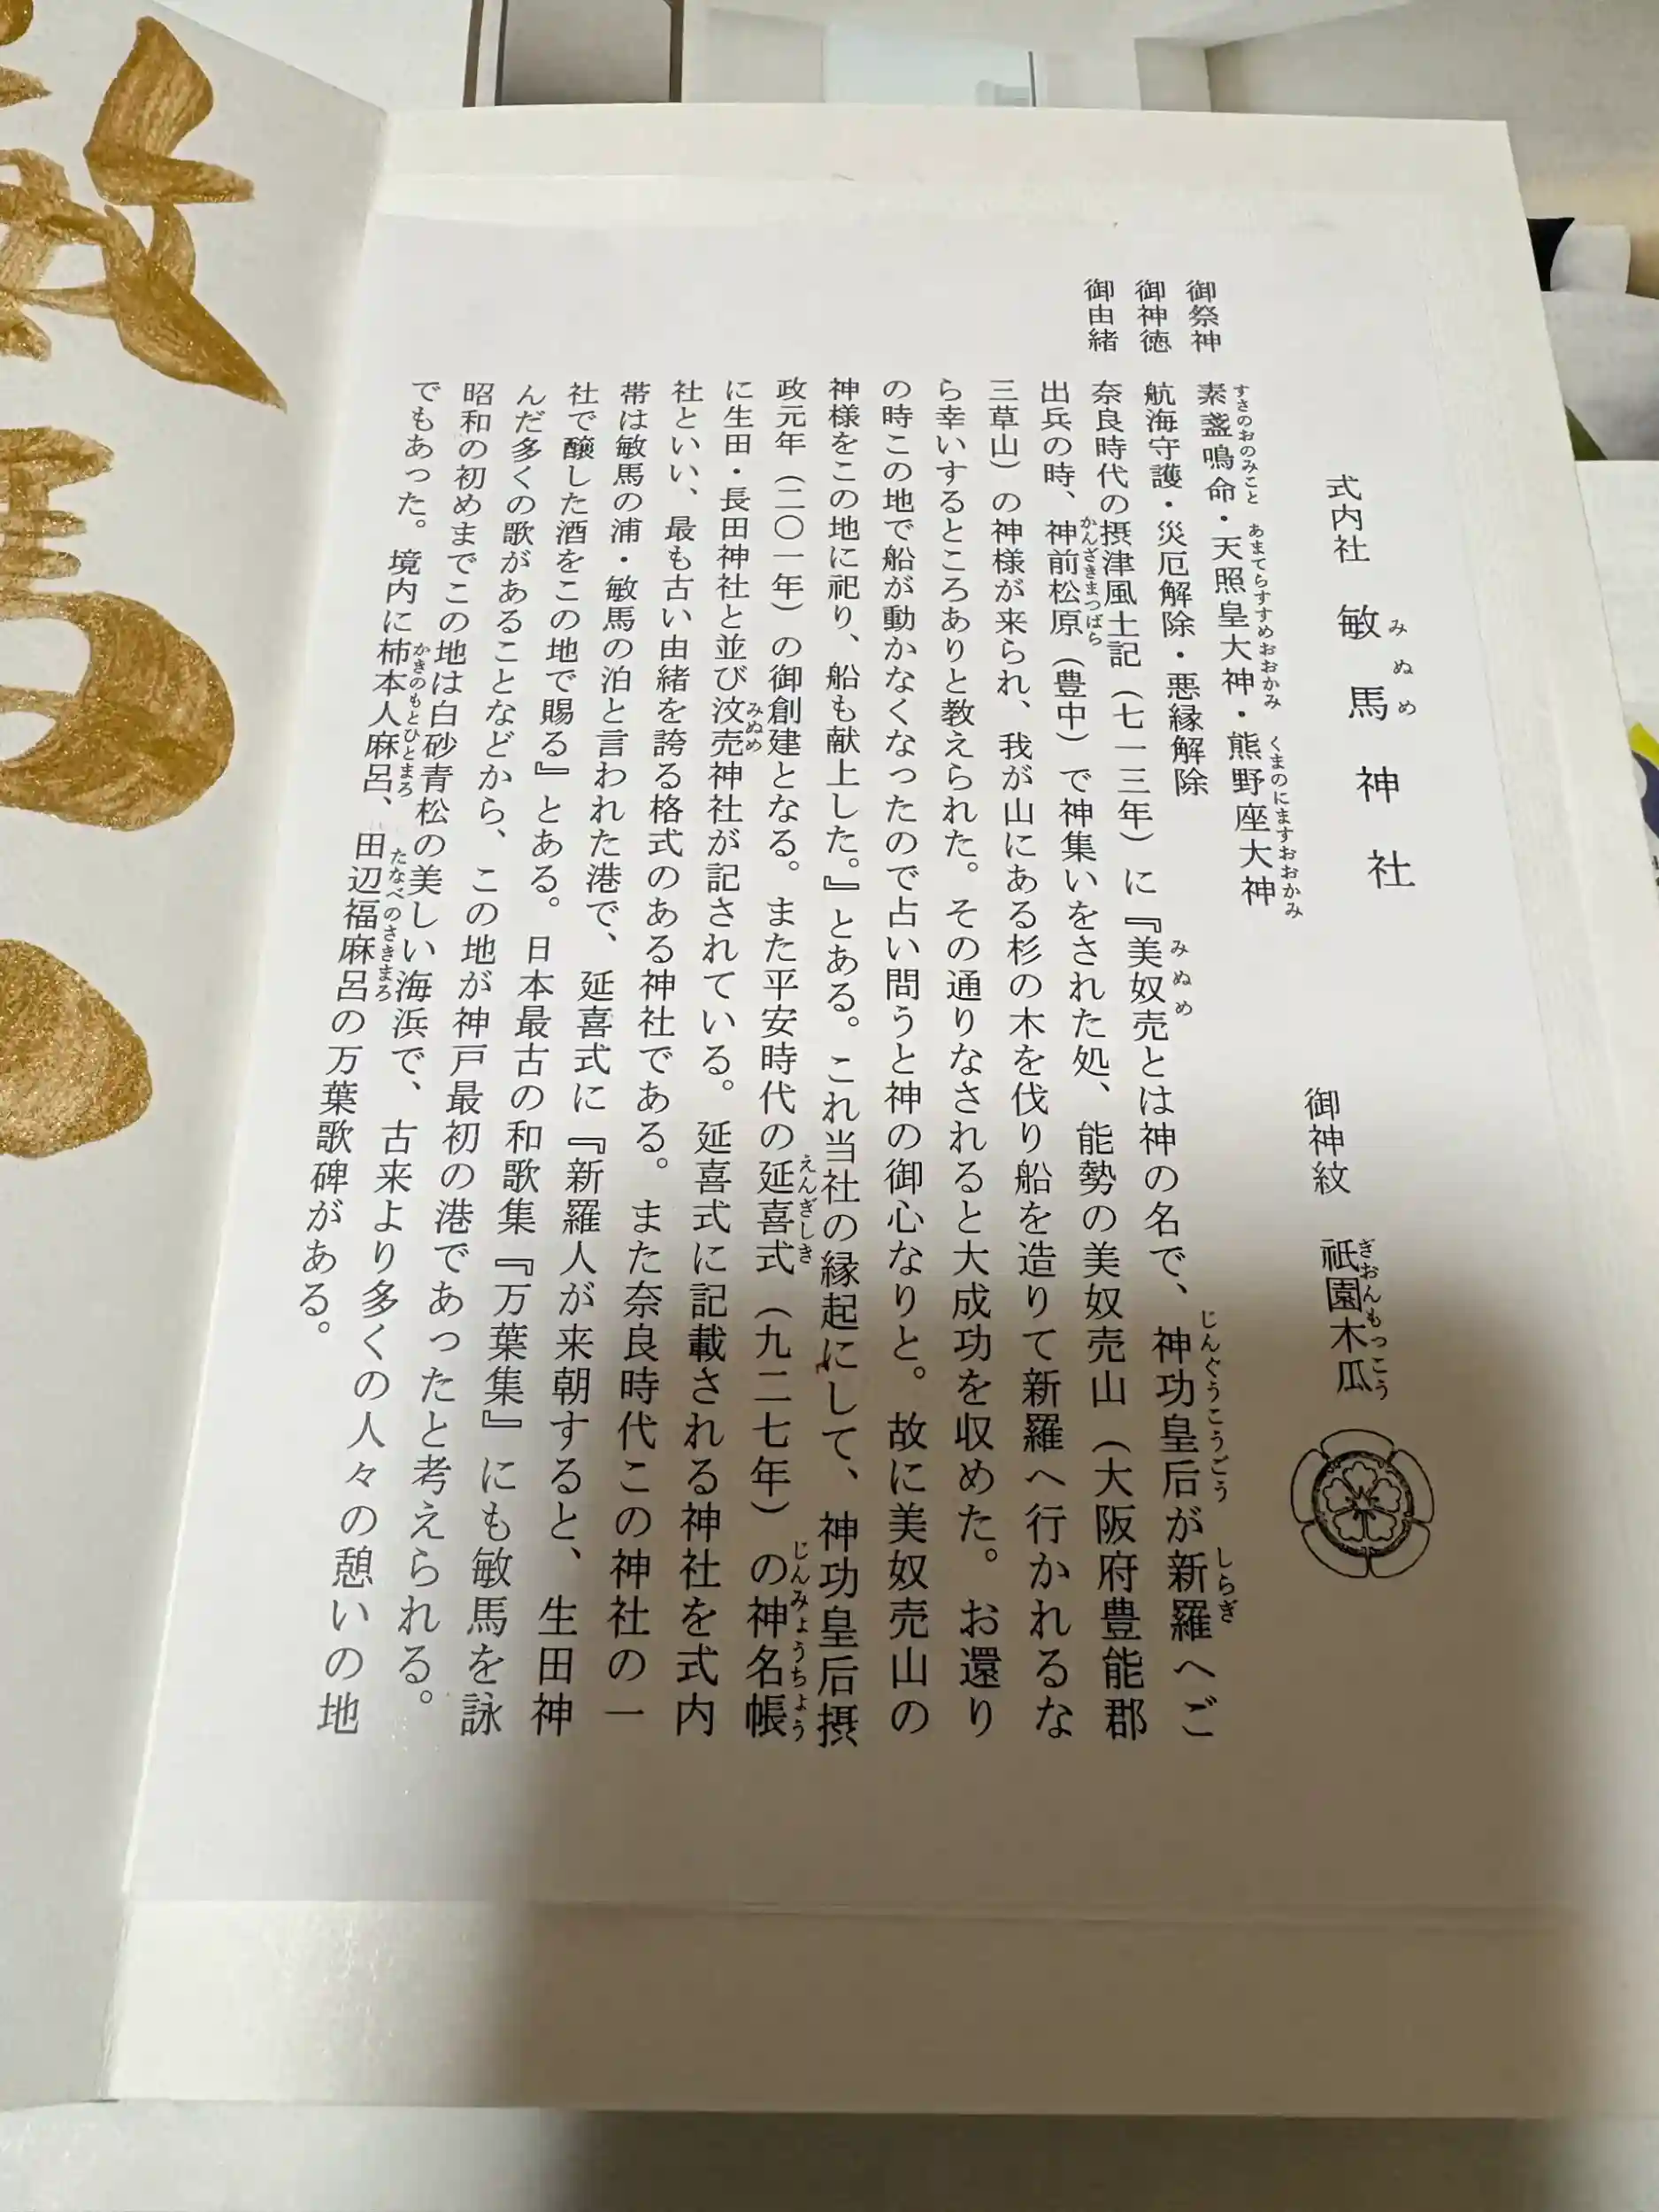 式内社 敏馬神社
みぬめ
御神紋 祇園木瓜
ぎおんもっこう
御祭神 素盞鳴命・天照皇大神・熊野座大神
すさのおのみこと あまてらすすめおおかみ くまのにますおおかみ
御神徳 航海守護・災厄解除・悪縁解除
御由緒 奈良時代の摂津風土記（七一三年）に『美奴売とは神の名で、神功皇后が新羅へご
みぬめ じんぐうこうごう しらぎ
出兵の時、神前松原（豊中）で神集いをされた処、能勢の美奴売山（大阪府豊能郡
かんざきまつばら
三草山）の神様が来られ、我が山にある杉の木を伐り船を造りて新羅へ行かれるな
ら幸いするところありと教えられた。その通りなされると大成功を収めた。お還り
の時この地で船が動かなくなったので占い問うと神の御心なりと。故に美奴売山の
神様をこの地に祀り、船も献上した。』とある。これ当社の縁起にして、神功皇后摂
政元年（二〇一年）の御創建となる。また平安時代の延喜式（九二七年）の神名帳
えんぎしき じんみょうちょう
に生田・長田神社と並び汶売神社が記されている。延喜式に記載される神社を式内
みぬめ
社といい、最も古い由緒を誇る格式のある神社である。また奈良時代この神社の一
帯は敏馬の浦・敏馬の泊と言われた港で、延喜式に『新羅人が来朝すると、生田神
社で醸した酒をこの地で賜る』とある。日本最古の和歌集『万葉集』にも敏馬を詠
んだ多くの歌があることなどから、この地が神戸最初の港であったと考えられる。
昭和の初めまでこの地は白砂青松の美しい海浜で、古来より多くの人々の憩いの地
でもあった。境内に柿本人麻呂、田辺福麻呂の万葉歌碑がある。
かきのもとひとまろ たなべのさきまろ